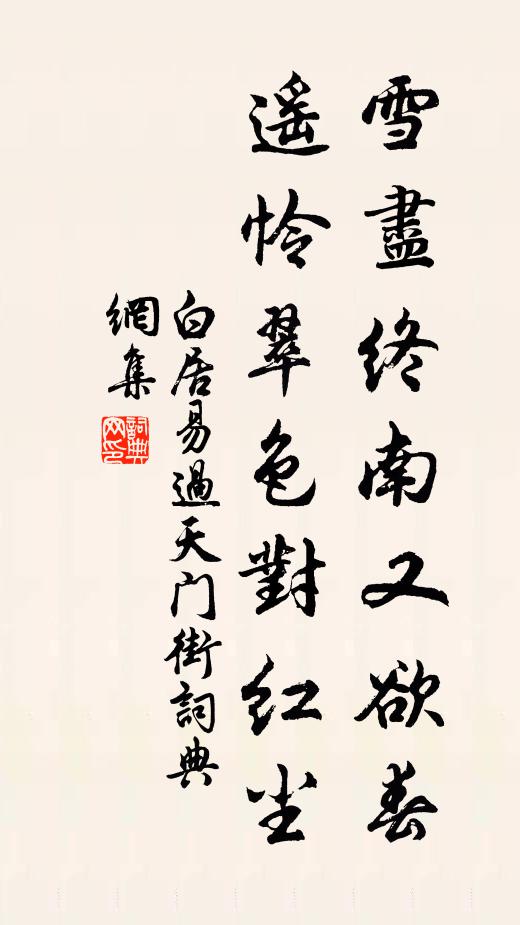 雪盡終南又欲春
遥怜翠色對红尘
白居易過天门街詞典
網集
詞典
网印